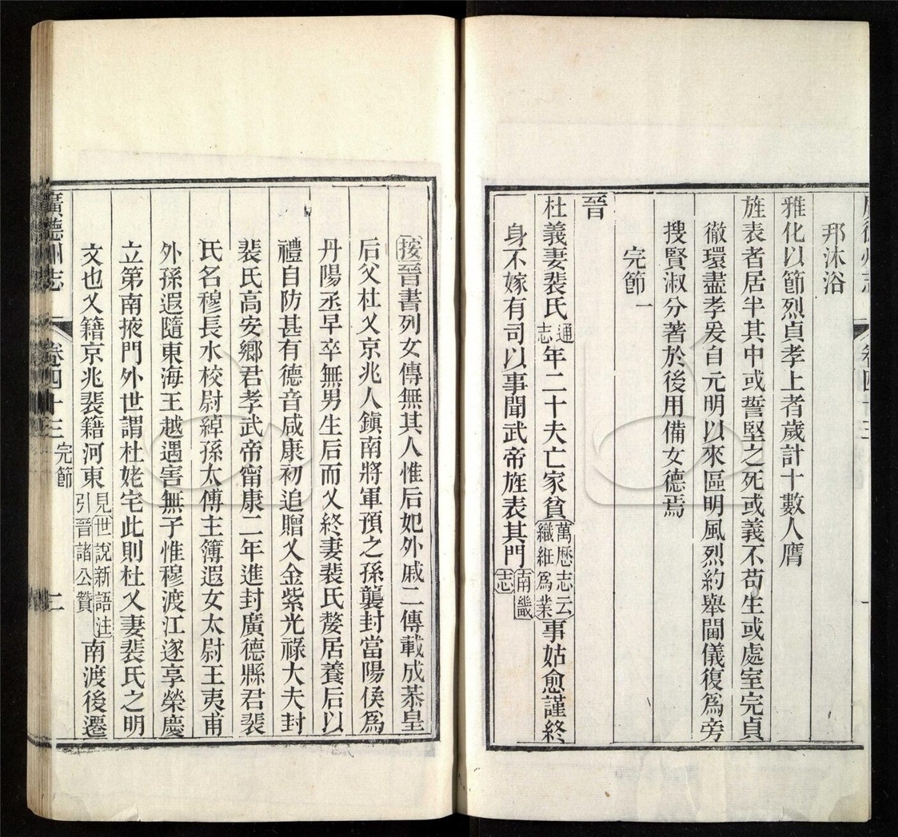 邦沐浴
雅化以節烈貞孝上者歲計十數人膺
旌表者居半其中或誓堅之死或義不苟生或處室完貞
徹環盡孝爰自元明以來區明風烈約舉閫儀復爲旁
搜賢淑分著於後用備女德焉
完節一
晉
杜義妻裴氏通志年二十夫亡家貧萬歷志云纖維爲業事姑愈謹終
身不嫁有司以事聞武帝旌表其門南畿志
按晉書列女傳無其人惟后妃外戚二傳載成恭皇
后父杜乂京兆人鎮南將軍預之孫襲封當陽侯爲
丹陽丞早卒無男生后而乂終妻裴氏嫠居養后以
禮自防甚有德音咸康初追贈乂金紫光祿大夫封
裴氏高安鄉君孝武帝甯康二年進封廣德縣君裴
氏名穆長水校尉綽孫太傅主簿遐女太尉王夷甫
外孫遐隨東海王越遇害無子惟穆渡江遂享榮慶
立第南掖門外世謂杜姥宅此則杜乂妻裴氏之明
文也乂籍京兆裴籍河東見世說新語注引晉諸公贊南渡後遷
廣德州志
卷四十三
完節
二